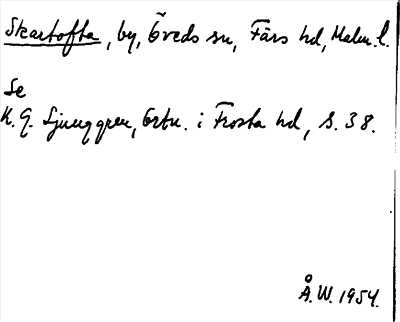 Skartofta, by, Öveds sn, Färs hd, Malm. l.
Se
K. G. Ljunggren, Ortn. i Frosta hd, s. 38.
Å. W. 1954.